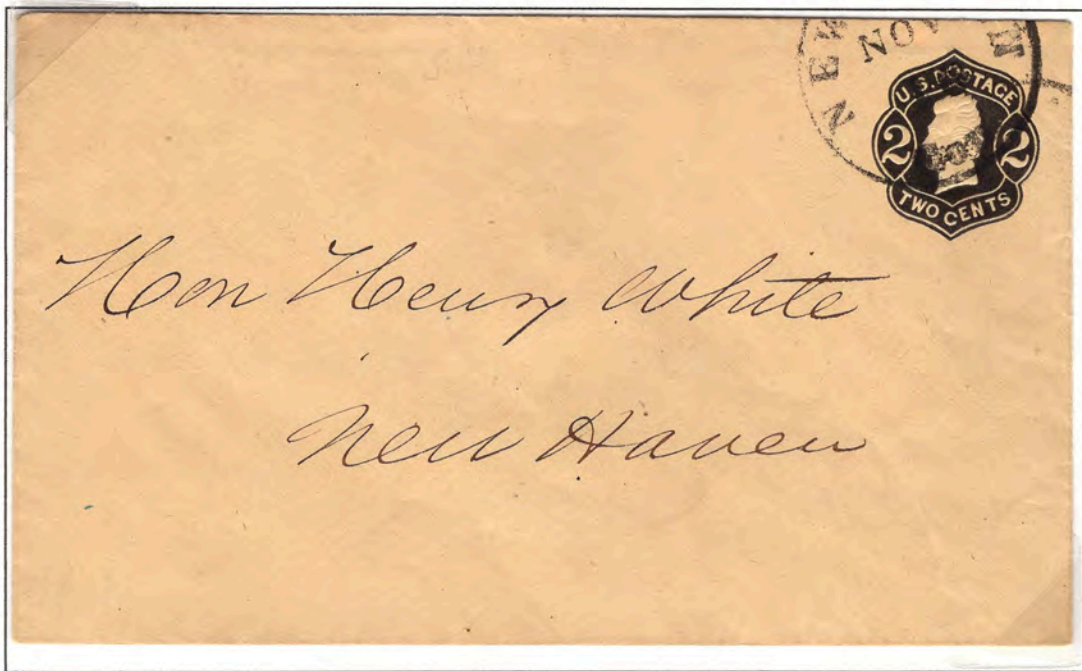 NEW H
NOV
U.S. POSTAGE
2 2
TWO CENTS
Hon Henry White
New Haven